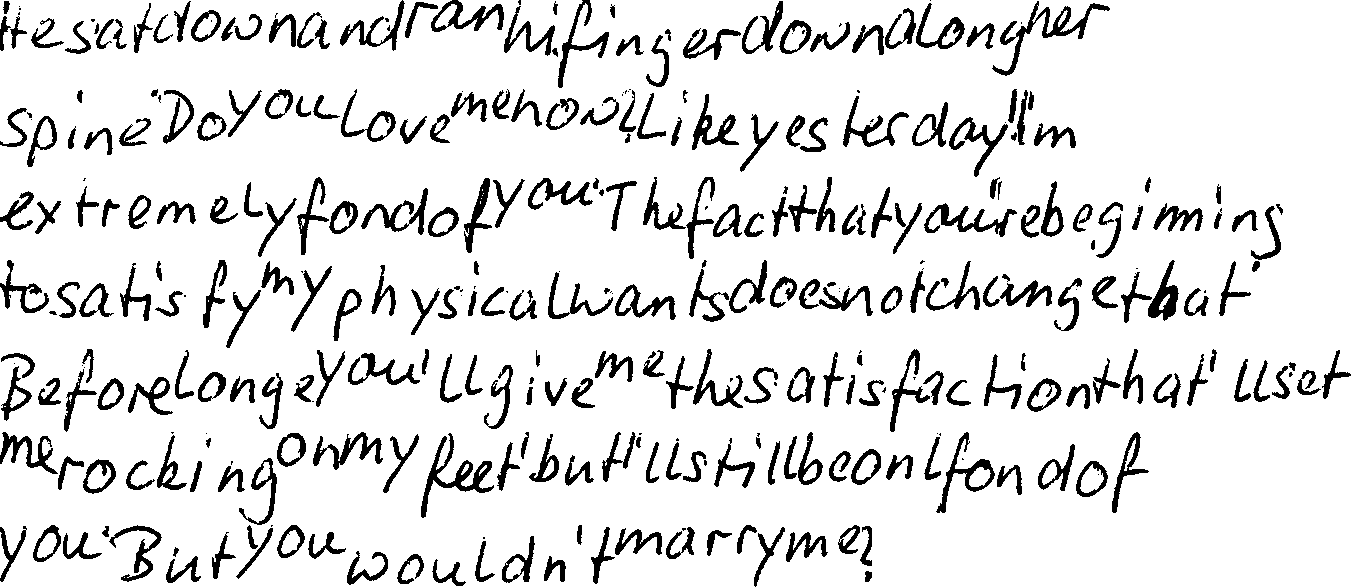 He sat down and ran hi. finger down along her
spine "Do you love me now? Like yesterday" I'm
extremely fond of you". The fact that you're beginning
to satisfy my physical wants does not change that"
Before longe you'll give me the satisfaction that'll set
me rocking on my feet 'but I'll still be onl fond of
you". But you wouldn't marry me?